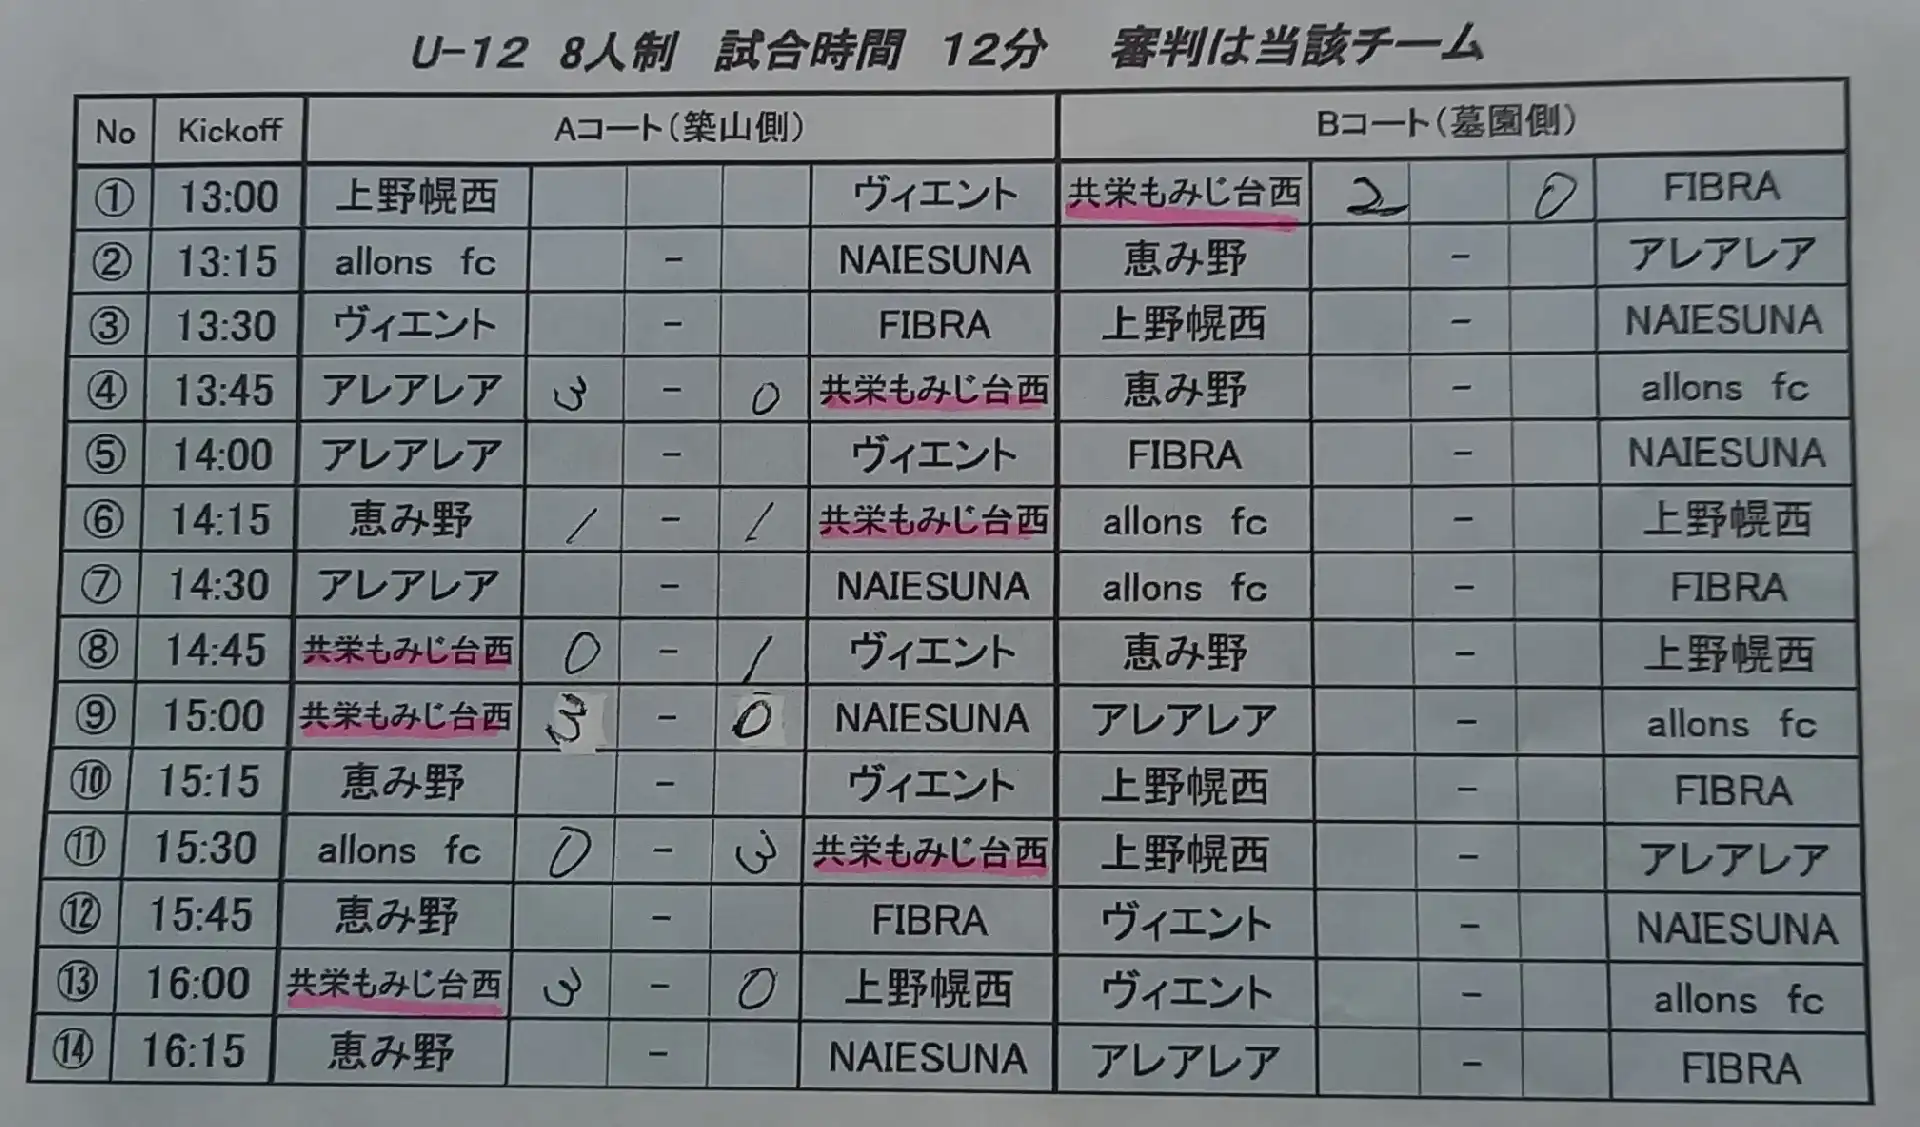 U-12 8人制 試合時間 12分 審判は当該チーム
No Kickoff Aコート(築山側) Bコート(墓園側)
① 13:00 上野幌西 ヴィエント 共栄もみじ台西 2 0 FIBRA
② 13:15 allons fc - NAIESUNA 恵み野 - アレアレア
③ 13:30 ヴィエント - FIBRA 上野幌西 - NAIESUNA
④ 13:45 アレアレア 3 - 0 共栄もみじ台西 恵み野 - allons fc
⑤ 14:00 アレアレア - ヴィエント FIBRA - NAIESUNA
⑥ 14:15 恵み野 1 - 1 共栄もみじ台西 allons fc - 上野幌西
⑦ 14:30 アレアレア - NAIESUNA allons fc - FIBRA
⑧ 14:45 共栄もみじ台西 0 - 1 ヴィエント 恵み野 - 上野幌西
⑨ 15:00 共栄もみじ台西 3 - 0 NAIESUNA アレアレア - allons fc
⑩ 15:15 恵み野 - ヴィエント 上野幌西 - FIBRA
⑪ 15:30 allons fc 0 - 3 共栄もみじ台西 上野幌西 - アレアレア
⑫ 15:45 恵み野 - FIBRA ヴィエント - NAIESUNA
⑬ 16:00 共栄もみじ台西 3 - 0 上野幌西 ヴィエント - allons fc
⑭ 16:15 恵み野 - NAIESUNA アレアレア - FIBRA